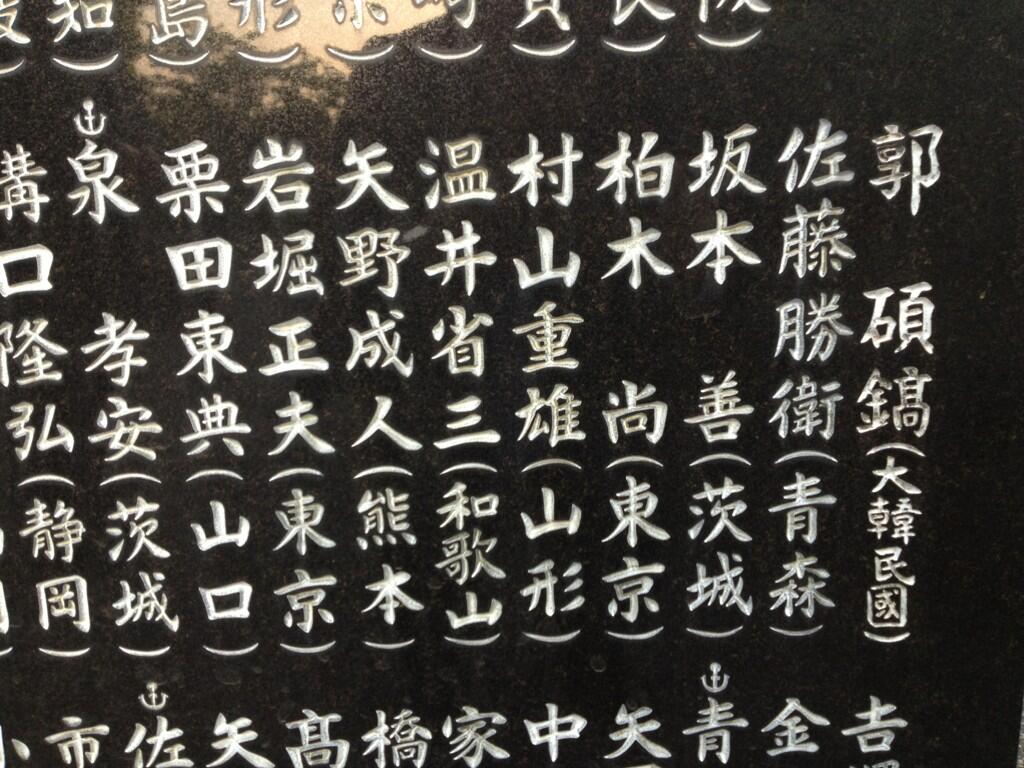 阪
長
賀
崎
京
形
島
知
郭 碩鎬(大韓民國)
佐藤勝衛(青森)
坂本 善(茨城)
柏木 尚(東京)
村山重雄(山形)
温井省三(和歌山)
矢野成人(熊本)
岩堀正夫(東京)
栗田東典(山口)
泉 孝安(茨城)
溝口隆弘(静岡)
吉
金
青
矢
中
家
橋
髙
矢
佐
市
小